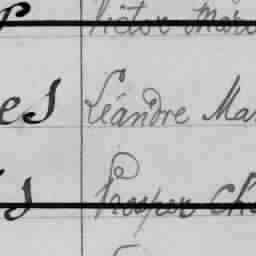 Victor
es Léandre Ma
s Prosper Ch